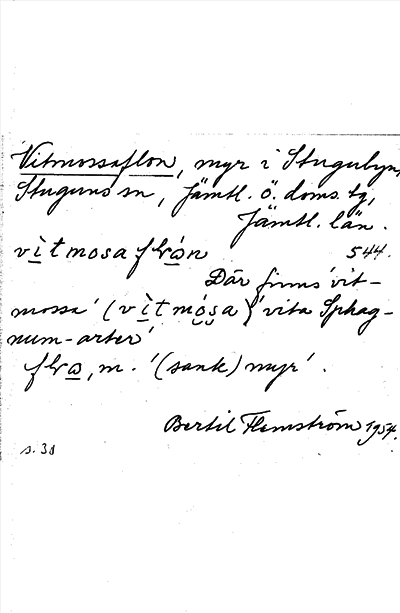 Vitmossaflon, myr i Stugubyn,
Stuguns sn, Jämtl. ö. doms. tg,
Jämtl. län.
vìtmosaflrán 544.
Där finns 'vit-
mossa' (vìtmósa) 'vita Sphag-
num-arter'
flra, m. '(sank) myr'.
Bertil Flemström 1954.
s. 38